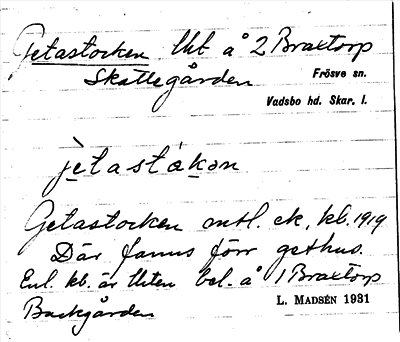 Getastocken lht å 2 Braxtorp
Skattegården Frösve sn.
Vadsbo hd. Skar. l.
jetaståkən
Getastocken mtl. ek. kb. 1919
Där fanns förr gethus.
Enl. kb. är lhten bel. å 1 Braxtorp
Backgården L. MADSÉN 1931